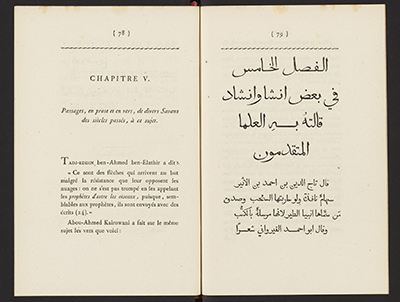 ( 78 )
CHAPITRE V.
Passages, en prose et en vers, de divers Savans
des siècles passés, à ce sujet.
TADJ-EDDIN ben-Ahmed ben-Elathir a dit :
« Ce sont des flèches qui arrivent au but
malgré la résistance que leur opposent les
nuages : on ne s'est pas trompé en les appelant
les prophètes d'entre les oiseaux, puisque, sem-
blables aux prophètes, ils sont envoyés avec des
écrits (24). »
Abou-Ahmed Kaïrowani a fait sur le même
sujet les vers que voici :
( 79 )
الفصل الخامس
في بعض انشا وانشاد
قالته به العلما
المتقدمون
قال تاج الدين بن احمد بن الاثير
سهام نافذة ولو حاربتها السحب وصدق
من سماها انبيا الطير لانها مرسلة بالكتب
وقال ابو احمد القيرواني شعرا